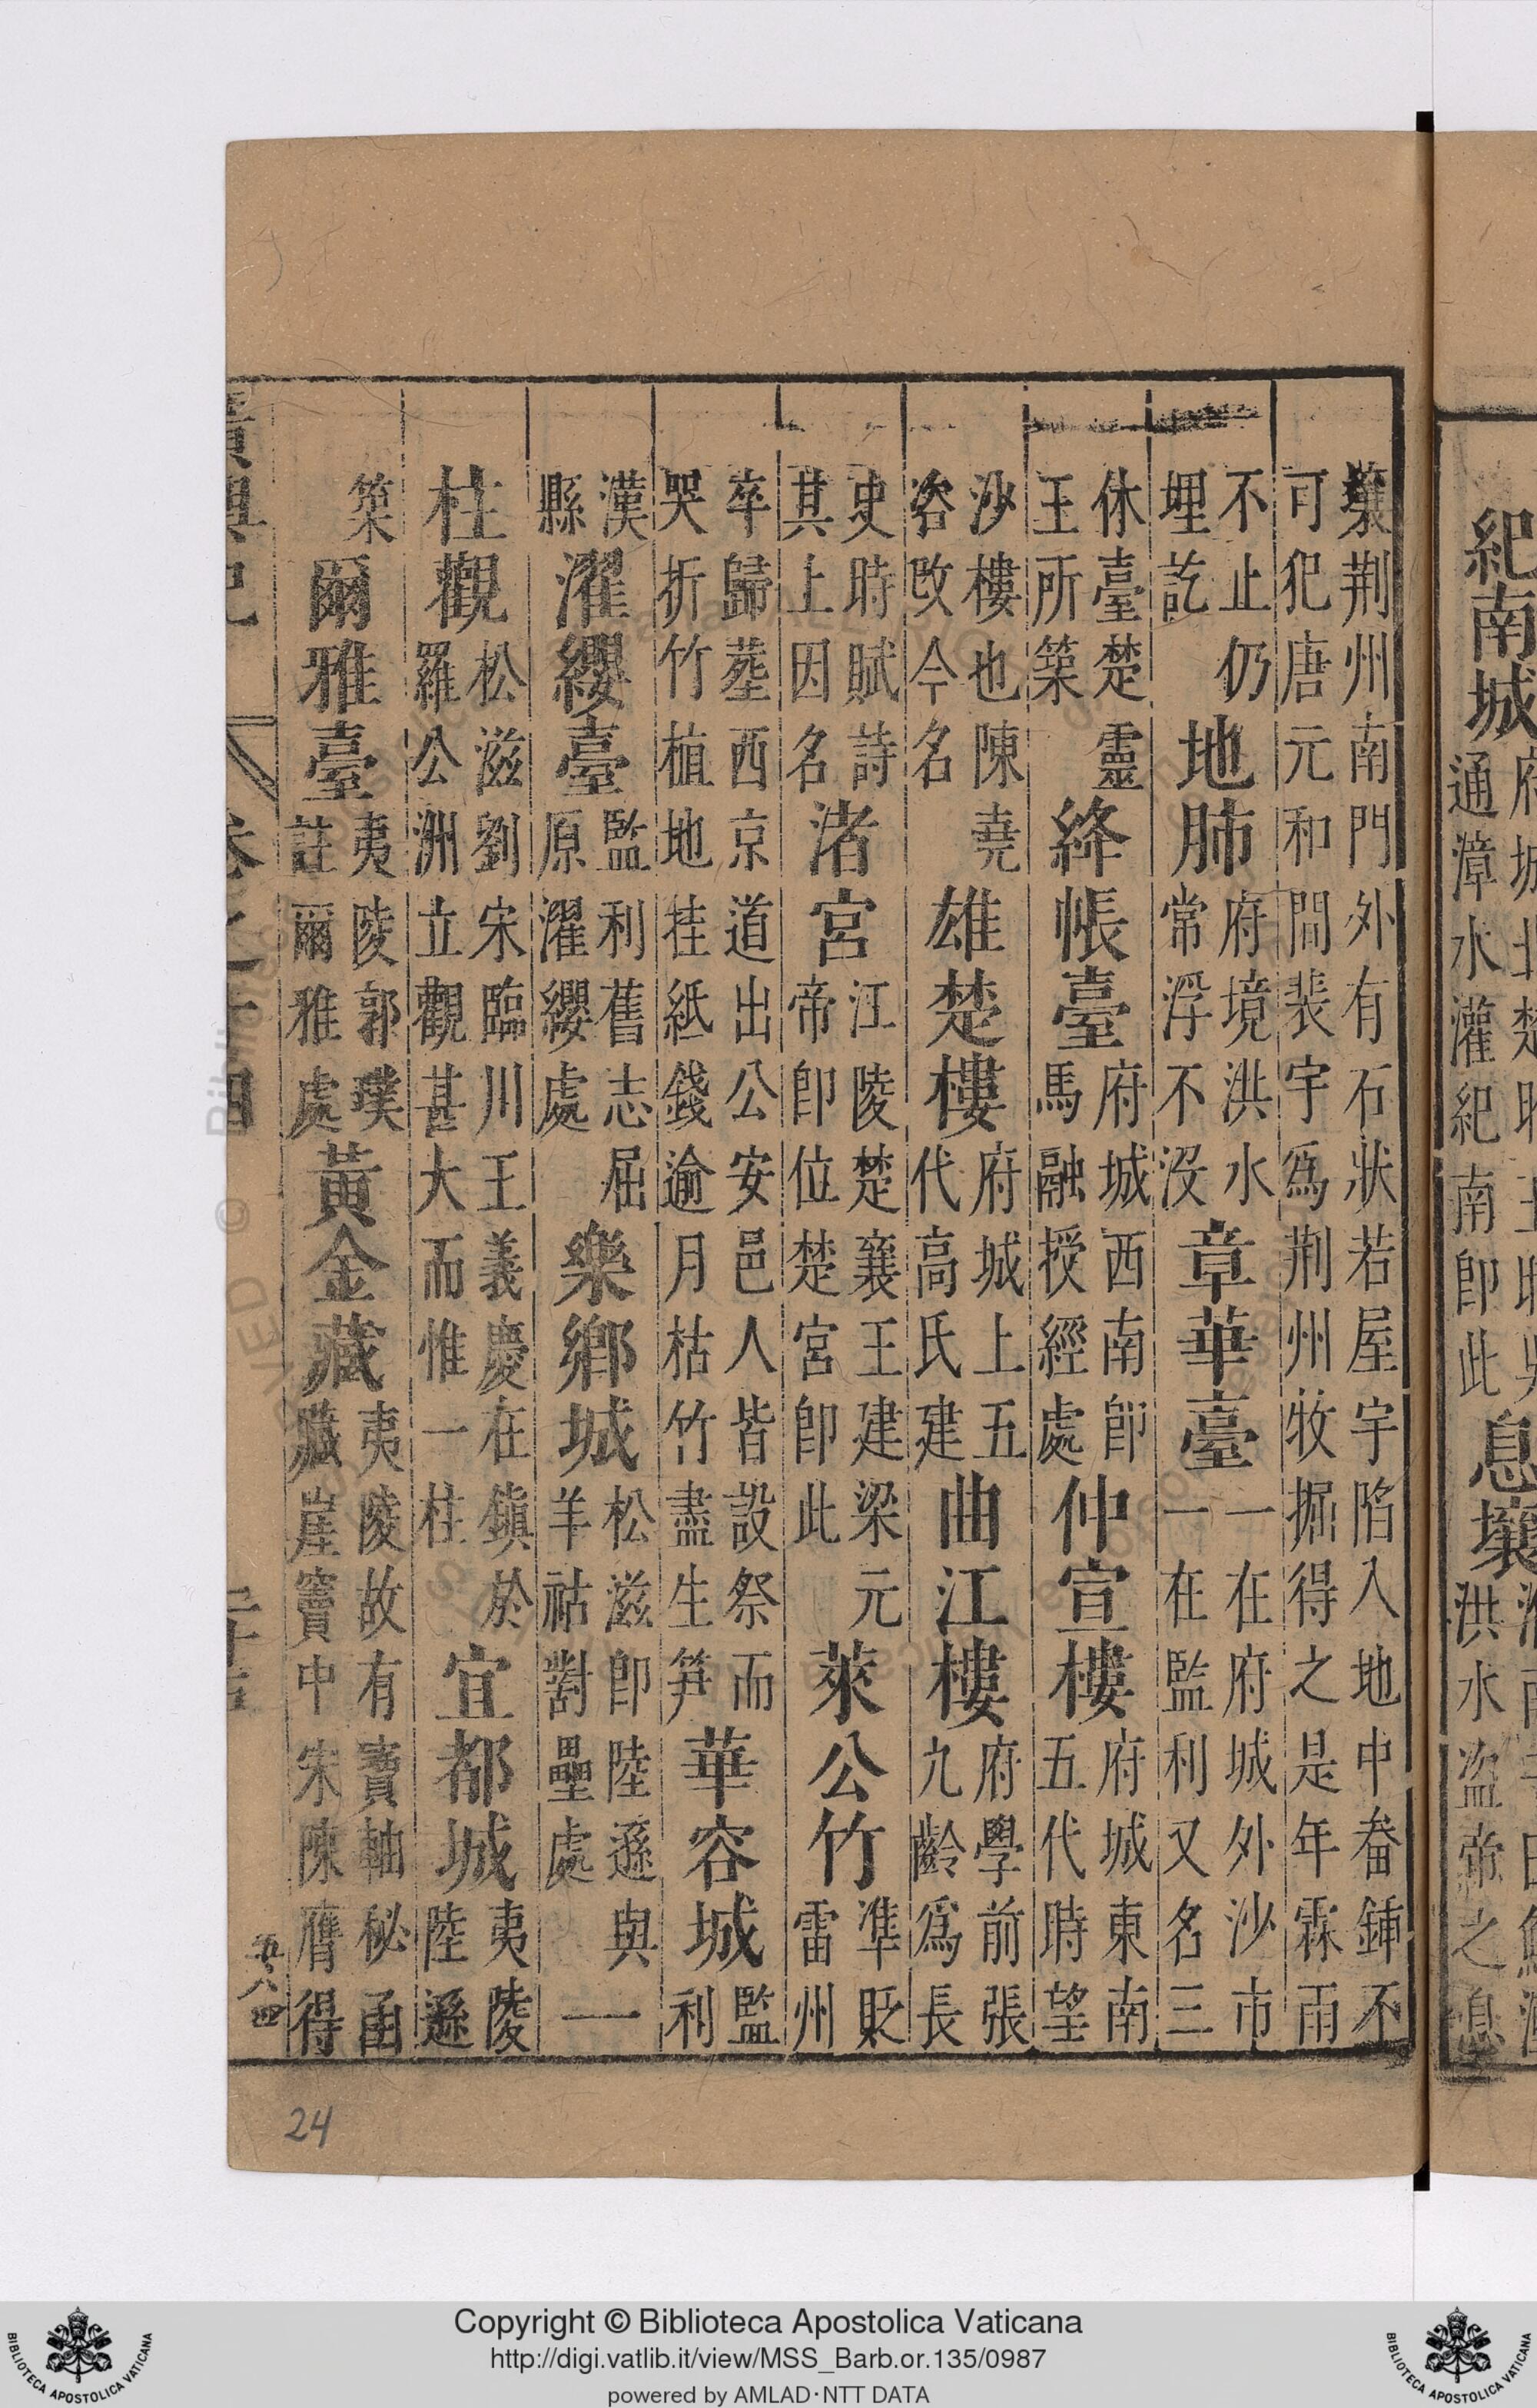 紀南城
通漳水灌紀南即此
息壤
洪水盜帝之息
壤荆州南門外有石狀若屋宇陷入地中畚鍤不
可犯唐元和間裴宇爲荆州牧掘得之是年霖雨
不止仍
埋訖
地肺
府境洪水
常浮不没
章華臺
一在府城外沙市
一在監利又名三
休臺楚靈
王所築
絳帳臺
府城西南即
馬融授經處
仲宣樓
府城東南
五代時望
沙樓也陳堯
咨改今名
雄楚樓
府城上五
代高氏建
曲江樓
府學前張
九齡爲長
史時賦詩
其上因名
渚宮
江陵楚襄王建梁元
帝即位楚宮即此
萊公竹
準貶
雷州
卒歸葬西京道出公安邑人皆設祭而
哭折竹植地挂紙錢逾月枯竹盡生笋
華容城
監
利
漢
縣
濯纓臺
監利舊志屈
原濯纓處
樂鄉城
松滋即陸遜與
羊祜對壘處
一
柱觀
松滋劉宋臨川王義慶在鎮於
羅公洲立觀甚大而惟一柱
宜都城
夷陵
陸遜
築
爾雅臺
夷陵郭璞
註爾雅處
黃金藏
夷陵故有寶軸秘函
藏崖竇中宋陳膺得
五八四
24
Copyright © Biblioteca Apostolica Vaticana
http://digi.vatlib.it/view/MSS_Barb.or.135/0987
powered by AMLAD·NTT DATA
BIBLIOTECA APOSTOLICA VATICANA
BIBLIOTECA APOSTOLICA VATICANA